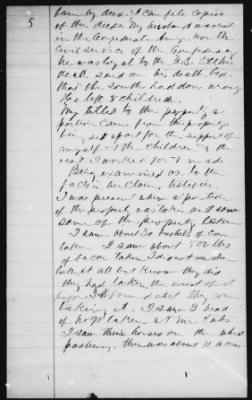 5
farm by deed. I can file copies
of the deed. My husband was not
in the Confederate Army, nor the
Civil service of the Confederacy
he was loyal to the U.S. till his
death, said on his death bed
that the south had done wrong
He left 8 children.
My title to the property a
portion came from the property
being set apart for the support of
myself & the children & the
rest I worked for & made
Being examined as to the
facts in her claim,
I was present when a portion
of the property was taken and saw
some of the property taken
I saw about 30 bushels of corn
taken. I saw about 500 lbs
of bacon taken I did not see them
take it all but know they did
they had taken the most of it
taking it. I saw 8 head
of hogs taken at
I saw three horses on the wheat
pasturing, there was about 11 acres